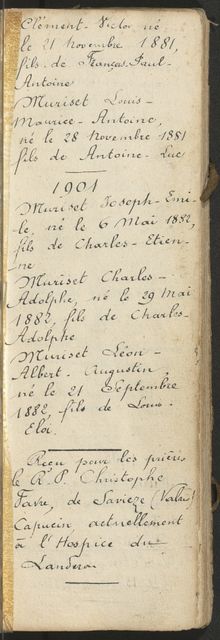 Clément-Victor né
le 21 Novembre 1881,
fils de François-Paul-
Antoine
Muriset Louis-
Maurice-Antoine,
né le 28 Novembre 1881
fils de Antoine-Luc
1901
Muriset Joseph-Emi-
le, né le 6 Mai 1882,
fils de Charles-Etien-
ne
Muriset Charles-
Adolphe, né le 29 Mai
1882, fils de Charles-
Adolphe
Muriset Léon-
Albert-Augustin,
né le 21 Septembre
1882, fils de Louis-
Eloi
Reçu pour les prières
le R. P. Christophe
Favre, de Savièze (Valais)
Capucin, actuellement
à l'Hospice du
Landeron